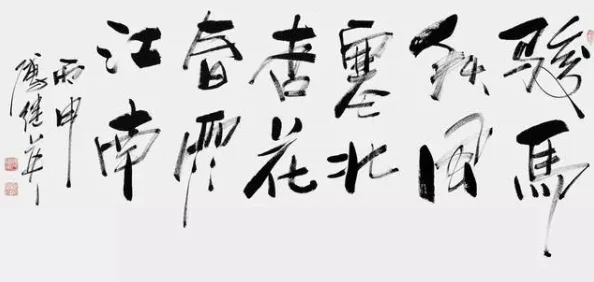 駿馬
秋風
塞北
杏花
春雨
江南
丙申